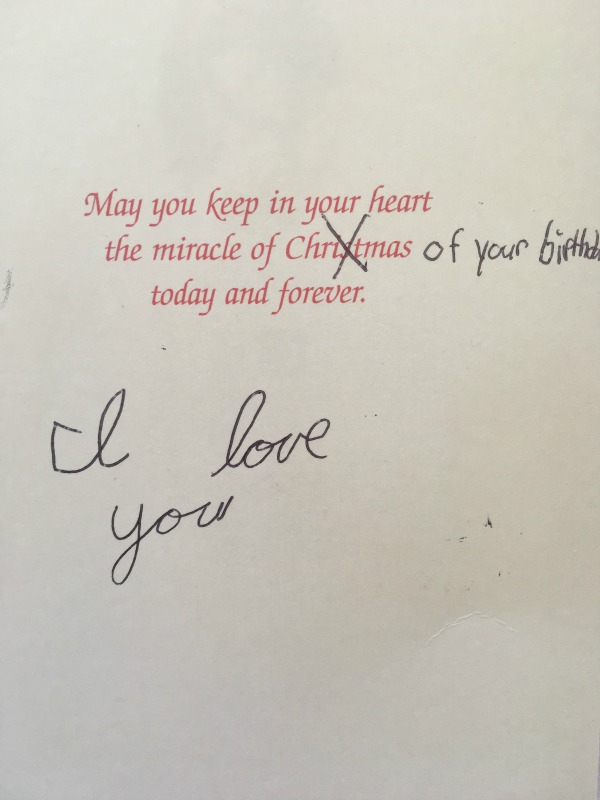 May you keep in your heart
the miracle of Christmas of your birthda
today and forever.
I love
you